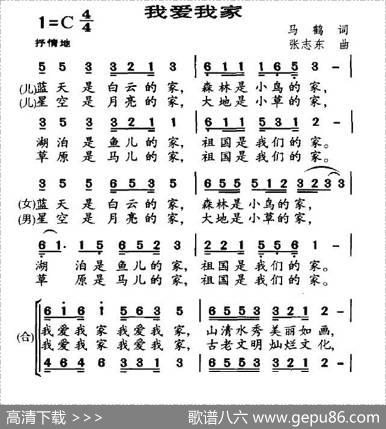 我爱我家
1=C 4/4
马鹤 词
抒情地
张志东 曲
5 5 3 3 2 1 3 | 6 1 1 1 5 1 3 -
(儿)蓝天是白云的家，森林是小鸟的家，
(儿)星空是月亮的家，大地是小草的家，
3 5 3 5 3 2 1 | 6 1 1 5 5 6 1 -
湖泊是鱼儿的家，祖国是我们的家。
草原是马儿的家，祖国是我们的家。
3 5 5 6 5 3 5 | 6 5 5 5 1 2 3 2 3 3
(女)蓝天是白云的家，森林是小鸟的家，
(男)星空是月亮的家，大地是小草的家，
6 1· 1 5 6 5 2 3 | 2 2 1 5 5 6 1 -
湖泊是鱼儿的家，祖国是我们的家。
草原是马儿的家，祖国是我们的家。
6 1 6 1 5 5 3 5 | 6 5 5 3 3 2 1 2 -
(合)
我爱我家我爱我家，山清水秀美丽如画，
我爱我家我爱我家，古老文明灿烂文化，
4 6 4 6 3 3 1 3 | 4 5 5 3 3 2 1 2 -
高清下载 >>>
歌谱八六 www.gepu86.com